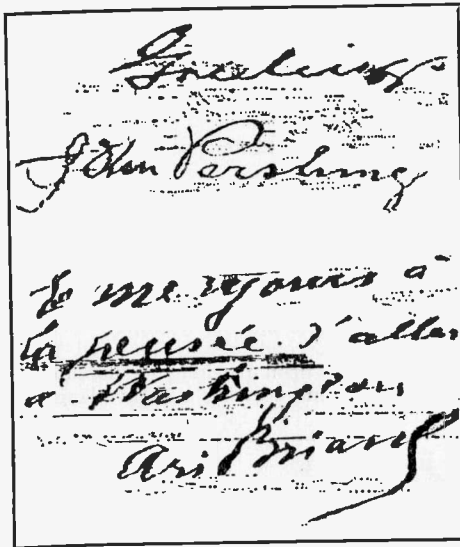 Greetings
John Pershing
Je me rejouis à
la pensée d'aller
a Washington
Ari Briand